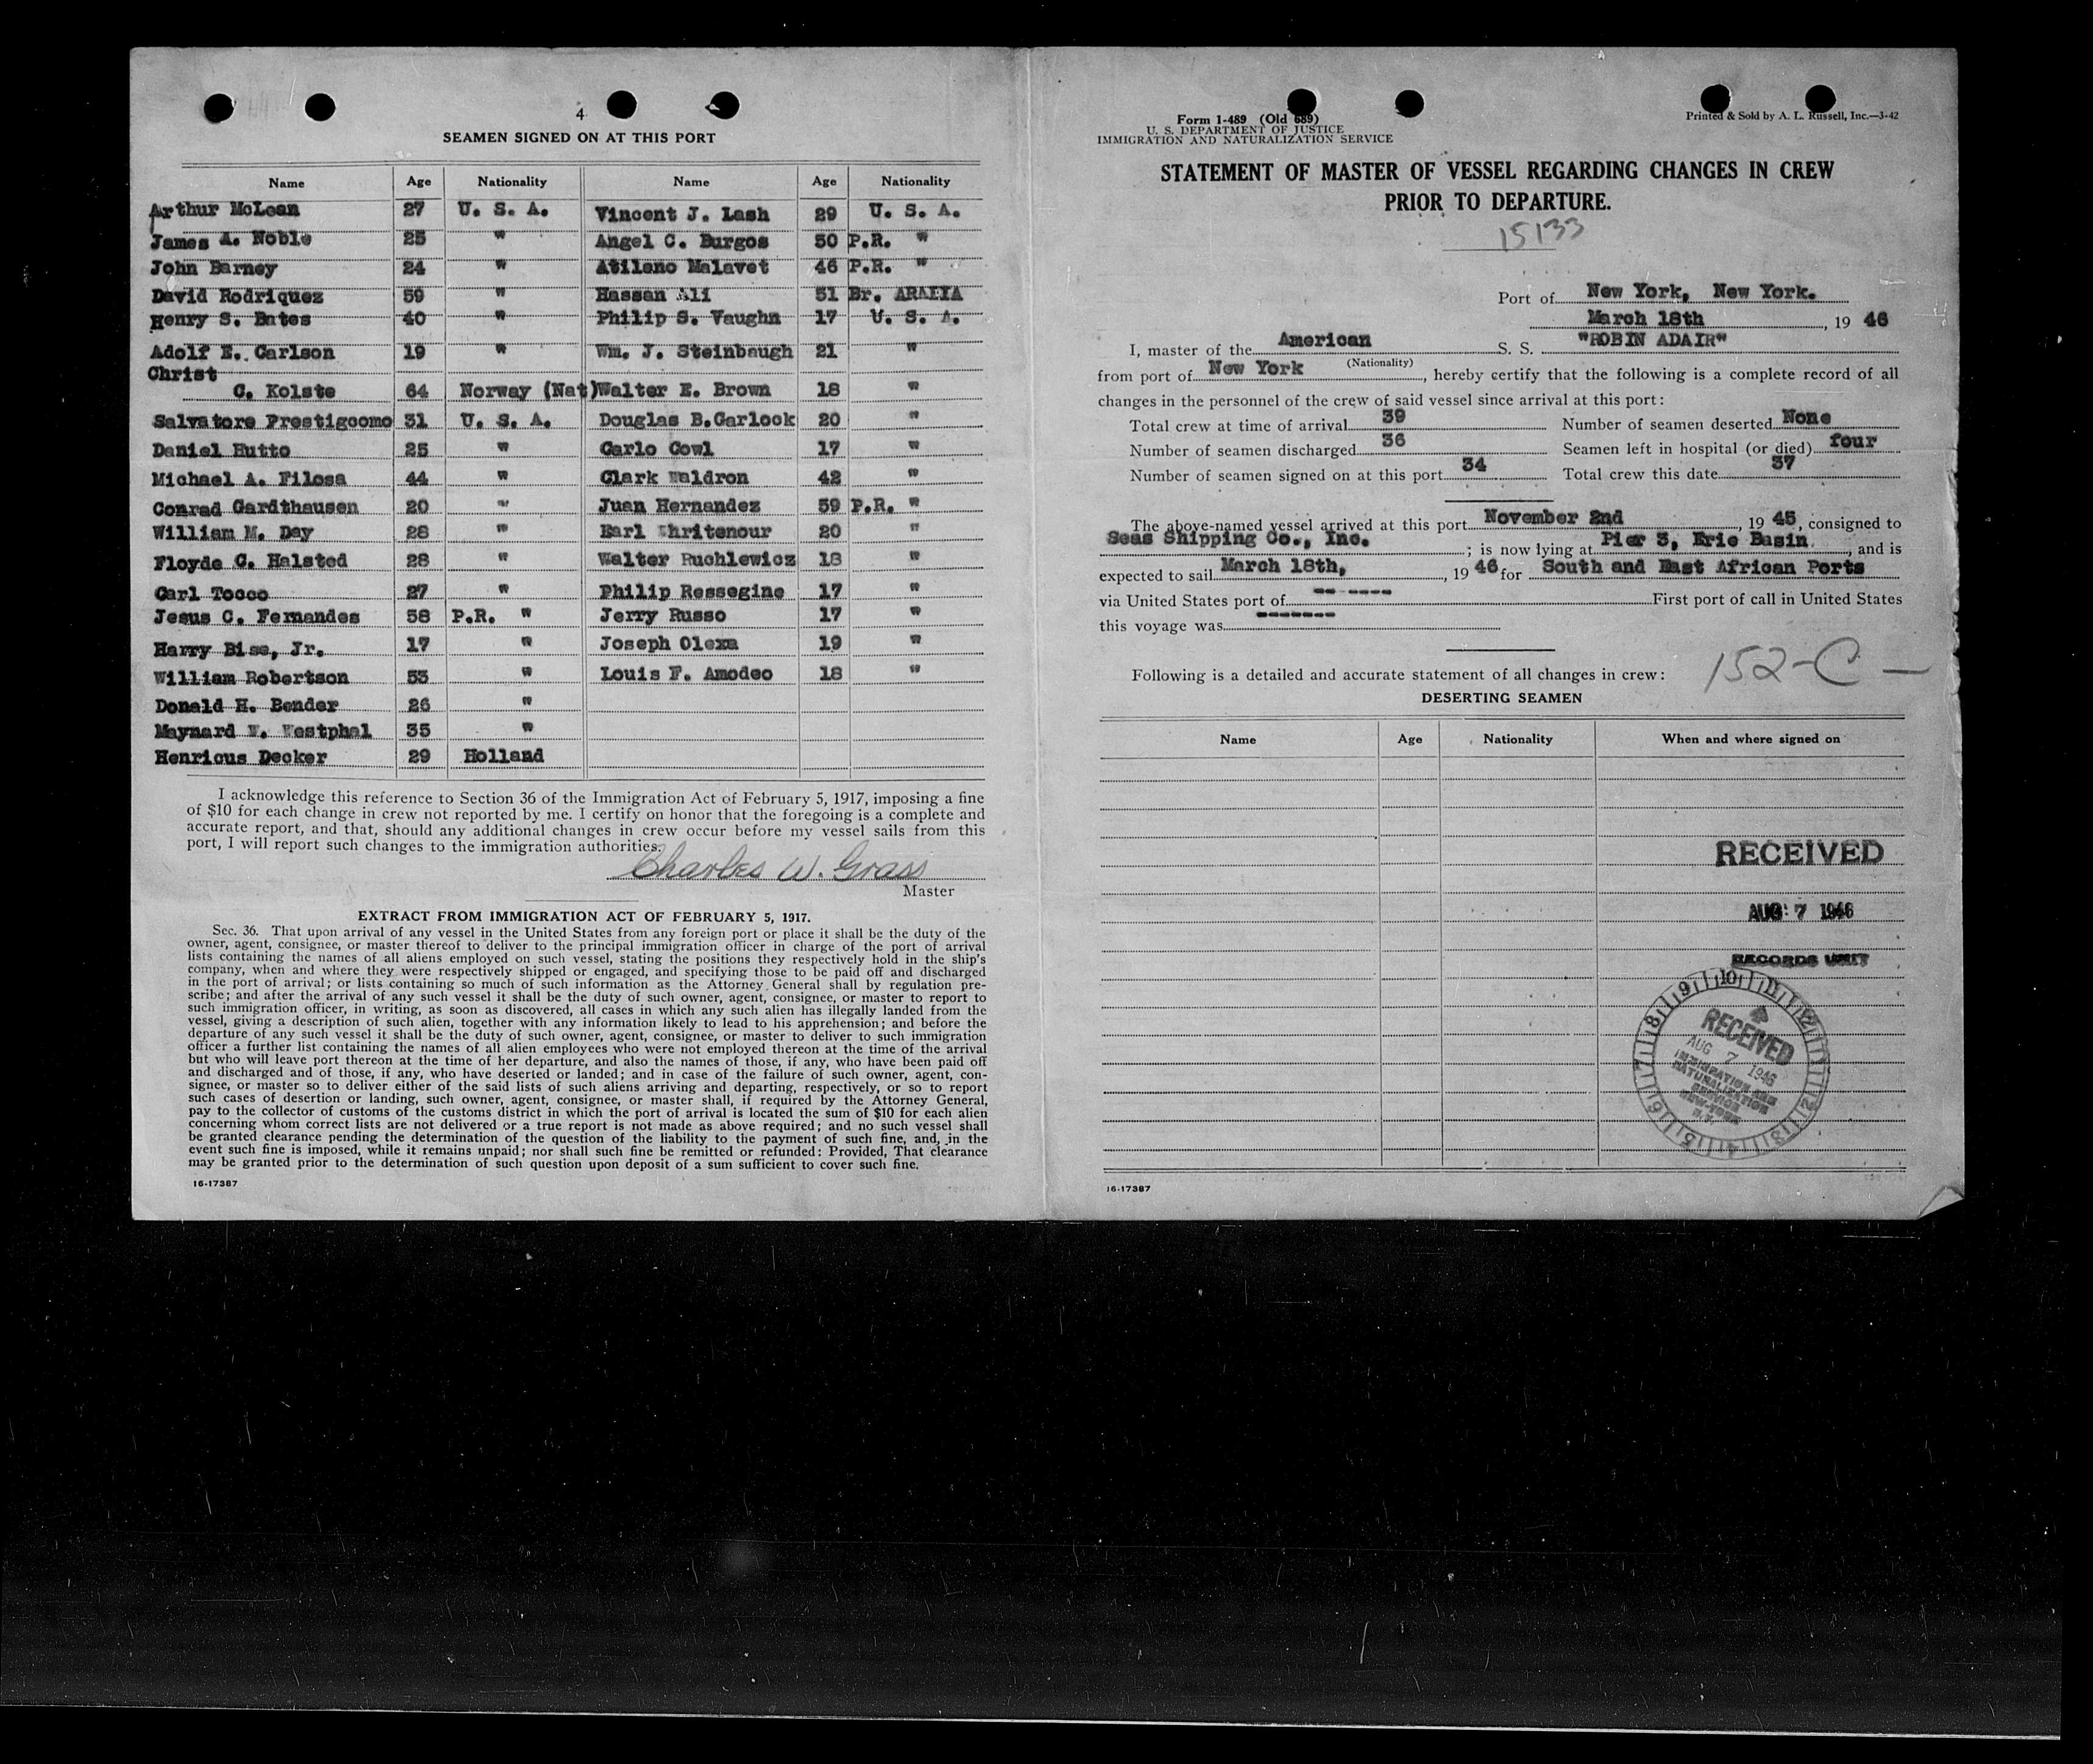 4
SEAMEN SIGNED ON AT THIS PORT
Name Age Nationality Name Age Nationality
Arthur McLean 27 U. S. A. Vincent J. Lash 29 U. S. A.
James A. Noble 25 " Angel C. Burgos 50 P.R. "
John Barney 24 " Atilano Malavet 46 P.R. "
David Rodriquez 59 " Hassan Ali 51 Br. ARABIA
Henry S. Bates 40 " Philip S. Vaughn 17 U. S. A.
Adolf E. Carlson 19 " Wm. J. Steinbaugh 21 "
Christ
C. Kolste 64 Norway (Nat) Walter E. Brown 18 "
Salvatore Prestigcomo 31 U. S. A. Douglas B. Garlock 20 "
Daniel Hutto 25 " Carlo Cowl 17 "
Michael A. Filosa 44 " Clark Waldron 42 "
Conrad Gardthausen 20 " Juan Hernandez 59 P.R. "
William M. Day 28 " Earl Shritenour 20 "
Floyde C. Halsted 28 " Walter Ruchlewicz 18 "
Carl Tocco 27 " Philip Ressegine 17 "
Jesus C. Fernandes 58 P.R. " Jerry Russo 17 "
Harry Bise, Jr. 17 " Joseph Olexa 19 "
William Robertson 53 " Louis F. Amodeo 18 "
Donald H. Bender 26 "
Maynard W. Westphal 35 "
Henricus Decker 29 Holland
I acknowledge this reference to Section 36 of the Immigration Act of February 5, 1917, imposing a fine
of $10 for each change in crew not reported by me. I certify on honor that the foregoing is a complete and
accurate report, and that, should any additional changes in crew occur before my vessel sails from this
port, I will report such changes to the immigration authorities.
Charles W. Grass
Master
EXTRACT FROM IMMIGRATION ACT OF FEBRUARY 5, 1917.
Sec. 36. That upon arrival of any vessel in the United States from any foreign port or place it shall be the duty of the
owner, agent, consignee, or master thereof to deliver to the principal immigration officer in charge of the port of arrival
lists containing the names of all aliens employed on such vessel, stating the positions they respectively hold in the ship's
company, when and where they were respectively shipped or engaged, and specifying those to be paid off and discharged
in the port of arrival; or lists containing so much of such information as the Attorney General shall by regulation pre-
scribe; and after the arrival of any such vessel it shall be the duty of such owner, agent, consignee, or master to report to
such immigration officer, in writing, as soon as discovered, all cases in which any such alien has illegally landed from the
vessel, giving a description of such alien, together with any information likely to lead to his apprehension; and before the
departure of any such vessel it shall be the duty of such owner, agent, consignee, or master to deliver to such immigration
officer a further list containing the names of all alien employees who were not employed thereon at the time of the arrival
but who will leave port thereon at the time of her departure, and also the names of those, if any, who have been paid off
and discharged and of those, if any, who have deserted or landed; and in case of the failure of such owner, agent, con-
signee, or master so to deliver either of the said lists of such aliens arriving and departing, respectively, or so to report
such cases of desertion or landing, such owner, agent, consignee, or master shall, if required by the Attorney General,
pay to the collector of customs of the customs district in which the port of arrival is located the sum of $10 for each alien
concerning whom correct lists are not delivered or a true report is not made as above required; and no such vessel shall
be granted clearance pending the determination of the question of the liability to the payment of such fine, and, in the
event such fine is imposed, while it remains unpaid; nor shall such fine be remitted or refunded: Provided, That clearance
may be granted prior to the determination of such question upon deposit of a sum sufficient to cover such fine.
16-17387
Form 1-489 (Old 689)
U. S. DEPARTMENT OF JUSTICE
IMMIGRATION AND NATURALIZATION SERVICE
Printed & Sold by A. L. Russell, Inc.—3-42
STATEMENT OF MASTER OF VESSEL REGARDING CHANGES IN CREW
PRIOR TO DEPARTURE.
15133
Port of New York, New York.
March 18th, 19 46
I, master of the American S. S. "ROBIN ADAIR"
(Nationality)
from port of New York, hereby certify that the following is a complete record of all
changes in the personnel of the crew of said vessel since arrival at this port:
Total crew at time of arrival 39 Number of seamen deserted None
Number of seamen discharged 36 Seamen left in hospital (or died) four
Number of seamen signed on at this port 34 Total crew this date 37
The above-named vessel arrived at this port November 2nd, 19 45, consigned to
Seas Shipping Co., Inc.; is now lying at Pier 3, Erie Basin, and is
expected to sail March 18th, 19 46 for South and East African Ports
via United States port of -- ---- First port of call in United States
this voyage was -------
152-C —
Following is a detailed and accurate statement of all changes in crew:
DESERTING SEAMEN
Name Age Nationality When and where signed on
RECEIVED
AUG 7 1946
RECORDS UNIT
9 10 11 12 1 2 3 4 5 6 7 8
RECEIVED
AUG 7 1946
IMMIGRATION AND
NATURALIZATION
SERVICE
NEW YORK
N.Y.
16-17387